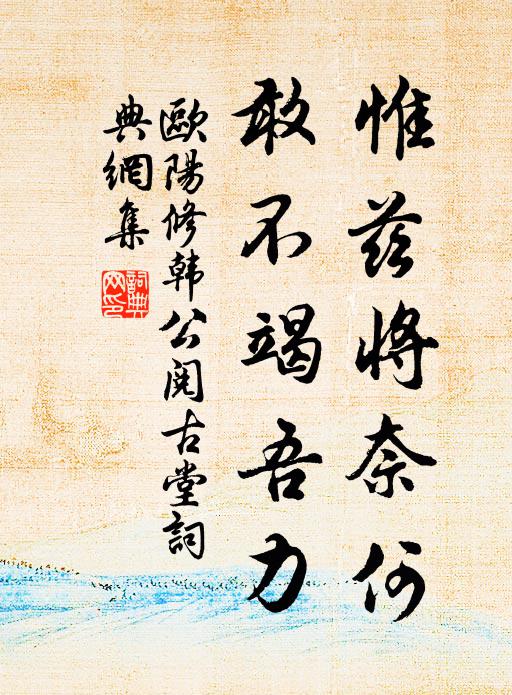 惟茲將奈何
敢不竭吾力
歐陽修韩公阅古堂詞
典網集
詞典
网印